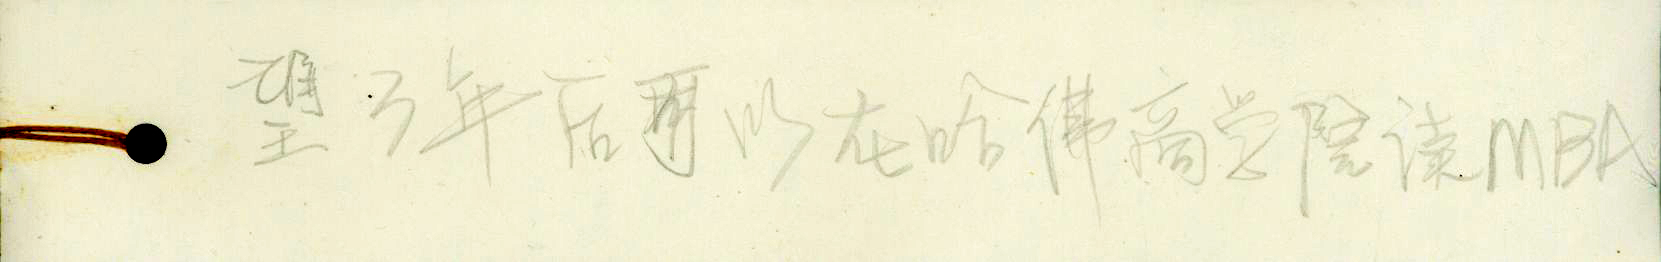 望3年后可以在哈佛商学院读MBA